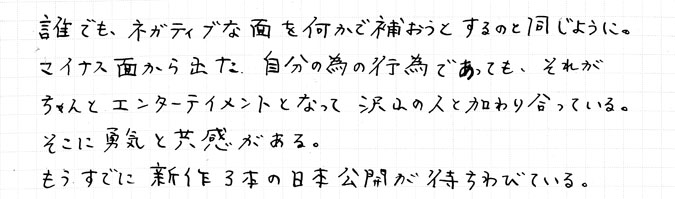 誰でも、ネガティブな面を何かで補おうとするのと同じように。
マイナス面から出た、自分の為の行為であっても、それが
ちゃんとエンターテイメントとなって沢山の人と加わり合っている。
そこに勇気と共感がある。
もうすでに新作3本の日本公開が待ちわびている。